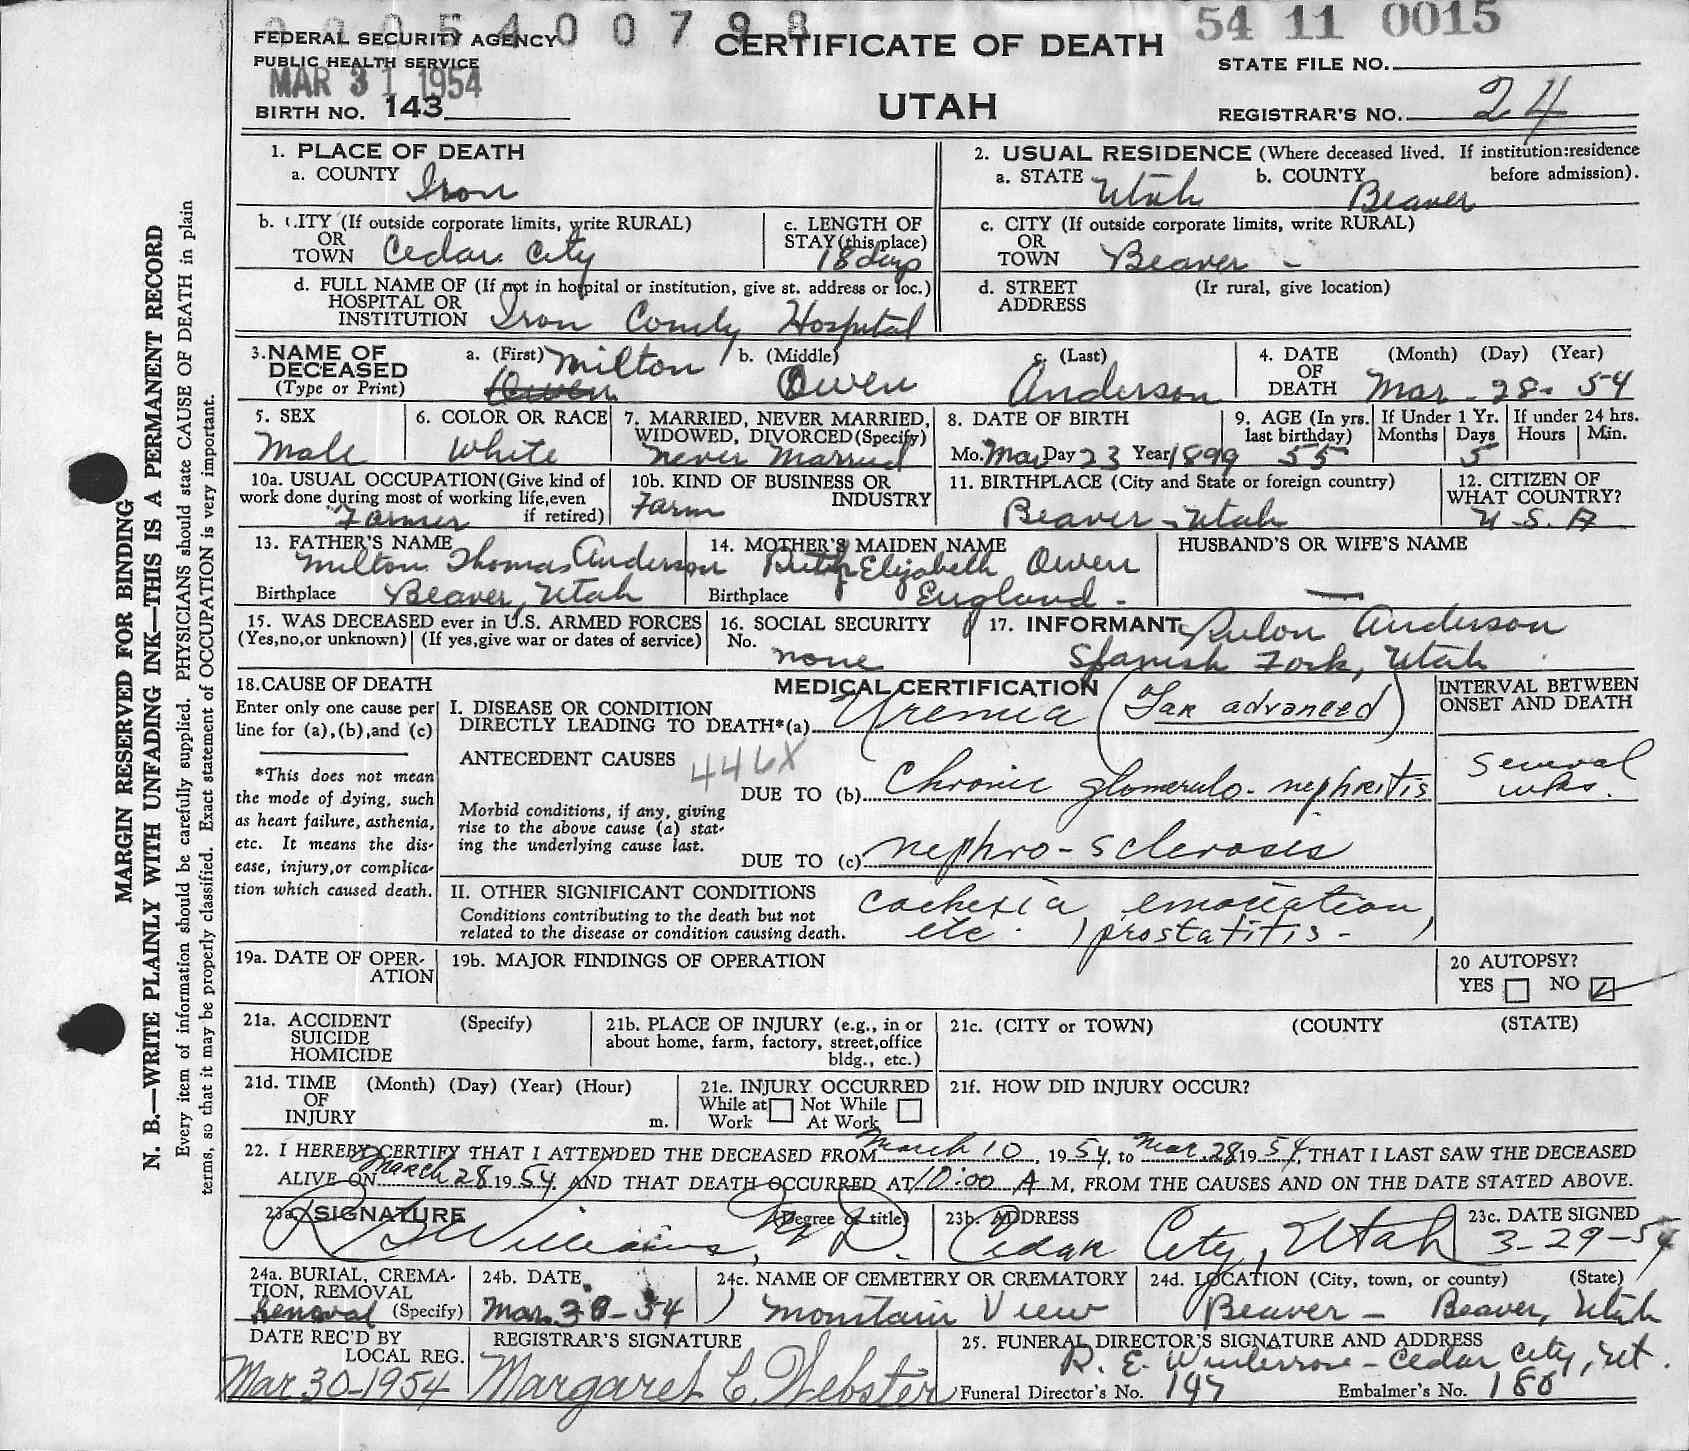 0 0 5 4 0 0 7 9 8
54 11 0015
FEDERAL SECURITY AGENCY
PUBLIC HEALTH SERVICE
MAR 31 1954
BIRTH NO. 143
CERTIFICATE OF DEATH
UTAH
STATE FILE NO.
REGISTRAR'S NO. 24
MARGIN RESERVED FOR BINDING
N. B.—WRITE PLAINLY WITH UNFADING INK—THIS IS A PERMANENT RECORD
Every item of information should be carefully supplied. PHYSICIANS should state CAUSE OF DEATH in plain
terms, so that it may be properly classified. Exact statement of OCCUPATION is very important.
1. PLACE OF DEATH
a. COUNTY Iron
2. USUAL RESIDENCE (Where deceased lived. If institution:residence
a. STATE Utah b. COUNTY Beaver before admission).
b. CITY (If outside corporate limits, write RURAL)
OR
TOWN Cedar City
c. LENGTH OF
STAY (this place)
18 days
c. CITY (If outside corporate limits, write RURAL)
OR
TOWN Beaver -
d. FULL NAME OF (If not in hospital or institution, give st. address or loc.)
HOSPITAL OR
INSTITUTION Iron County Hospital
d. STREET (Ir rural, give location)
ADDRESS
3. NAME OF
DECEASED
(Type or Print)
a. (First) Milton
Owen
b. (Middle)
Owen
c. (Last)
Anderson
4. DATE (Month) (Day) (Year)
OF
DEATH Mar - 28 - 54
5. SEX
Male
6. COLOR OR RACE
White
7. MARRIED, NEVER MARRIED,
WIDOWED, DIVORCED (Specify)
Never Married
8. DATE OF BIRTH
Mo. Mar Day 23 Year 1899
9. AGE (In yrs.
last birthday)
55
If Under 1 Yr.
Months Days
5
If under 24 hrs.
Hours Min.
10a. USUAL OCCUPATION (Give kind of
work done during most of working life, even
Farmer if retired)
10b. KIND OF BUSINESS OR
INDUSTRY
Farm
11. BIRTHPLACE (City and State or foreign country)
Beaver - Utah
12. CITIZEN OF
WHAT COUNTRY?
U. S. A
13. FATHER'S NAME
Milton Thomas Anderson
Birthplace Beaver, Utah
14. MOTHER'S MAIDEN NAME
Elizabeth Owen
Birthplace England -
HUSBAND'S OR WIFE'S NAME
—
15. WAS DECEASED ever in U.S. ARMED FORCES
(Yes,no,or unknown) (If yes,give war or dates of service)
16. SOCIAL SECURITY
No.
none
17. INFORMANT Rulon Anderson
Spanish Fork, Utah
18. CAUSE OF DEATH
Enter only one cause per
line for (a),(b),and (c)
*This does not mean
the mode of dying, such
as heart failure, asthenia,
etc. It means the dis-
ease, injury,or complica-
tion which caused death.
MEDICAL CERTIFICATION
I. DISEASE OR CONDITION
DIRECTLY LEADING TO DEATH*(a) Uremia (Far advanced)
ANTECEDENT CAUSES 446X
DUE TO (b) Chronic glomerulo-nephritis
Morbid conditions, if any, giving
rise to the above cause (a) stat-
ing the underlying cause last.
DUE TO (c) nephro-sclerosis
INTERVAL BETWEEN
ONSET AND DEATH
Several
wks.
II. OTHER SIGNIFICANT CONDITIONS
Conditions contributing to the death but not
related to the disease or condition causing death.
Cachexia, emaciation,
etc. prostatitis -
19a. DATE OF OPER-
ATION
19b. MAJOR FINDINGS OF OPERATION
20 AUTOPSY?
YES NO
21a. ACCIDENT (Specify)
SUICIDE
HOMICIDE
21b. PLACE OF INJURY (e.g., in or
about home, farm, factory, street,office
bldg., etc.)
21c. (CITY or TOWN) (COUNTY (STATE)
21d. TIME (Month) (Day) (Year) (Hour)
OF
INJURY m.
21e. INJURY OCCURRED
While at Not While
Work At Work
21f. HOW DID INJURY OCCUR?
22. I HEREBY CERTIFY THAT I ATTENDED THE DECEASED FROM March 10, 1954, to Mar. 28 1954, THAT I LAST SAW THE DECEASED
ALIVE ON March 28 1954 AND THAT DEATH OCCURRED AT 10:00 A M, FROM THE CAUSES AND ON THE DATE STATED ABOVE.
23a. SIGNATURE (Degree or title)
Williams, M D.
23b. ADDRESS
Cedar City, Utah
23c. DATE SIGNED
3-29-54
24a. BURIAL, CREMA-
TION, REMOVAL
Removal (Specify)
24b. DATE
Mar. 30-54
24c. NAME OF CEMETERY OR CREMATORY
Mountain View
24d. LOCATION (City, town, or county) (State)
Beaver - Beaver, Utah
DATE REC'D BY
LOCAL REG.
Mar 30-1954
REGISTRAR'S SIGNATURE
Margaret C. Webster
25. FUNERAL DIRECTOR'S SIGNATURE AND ADDRESS
R. E. Winterrose - Cedar City, Ut.
Funeral Director's No. 147 Embalmer's No. 186